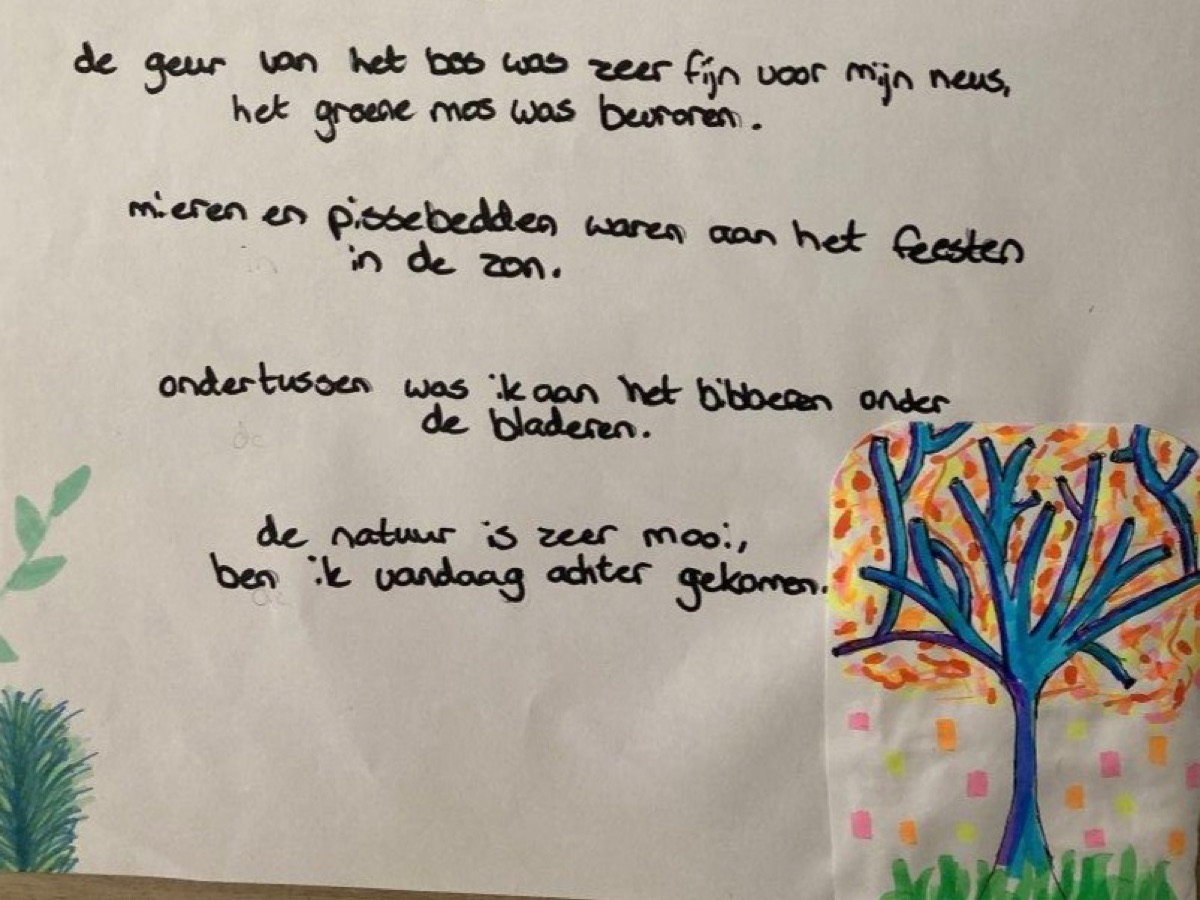 de geur van het bos was zeer fijn voor mijn neus,
het groene mos was bevroren.
mieren en pissebedden waren aan het feesten
in de zon.
ondertussen was ik aan het bibberen onder
de bladeren.
de natuur is zeer mooi,
ben ik vandaag achter gekomen.